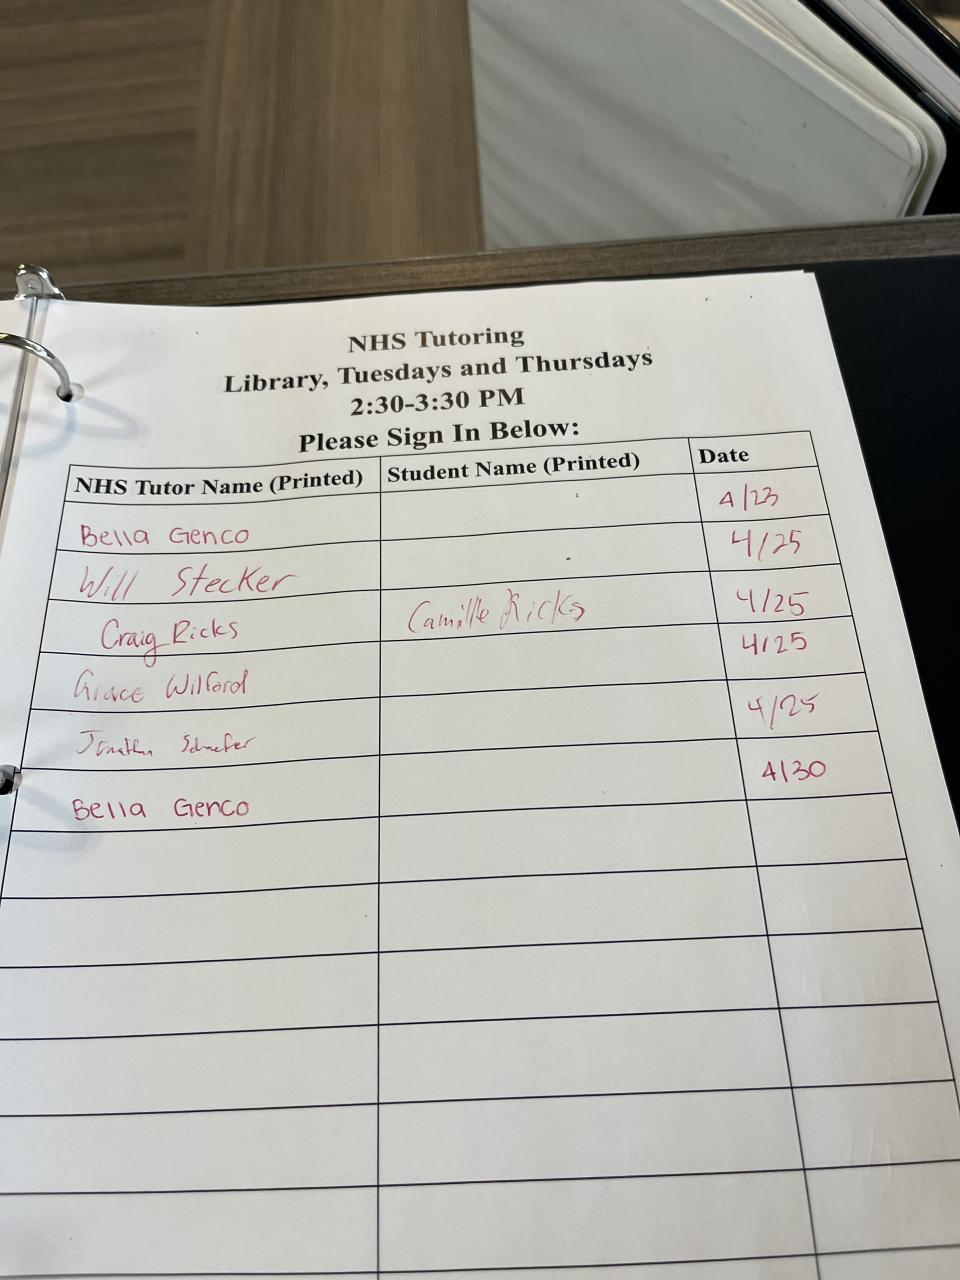 NHS Tutoring
Library, Tuesdays and Thursdays
2:30-3:30 PM
Please Sign In Below:
NHS Tutor Name (Printed) Student Name (Printed) Date
Bella Genco 4/23
Will Stecker 4/25
Craig Ricks Camille Ricks 4/25
Grace Wilford 4/25
Jonathan Schaefer 4/25
Bella Genco 4/30